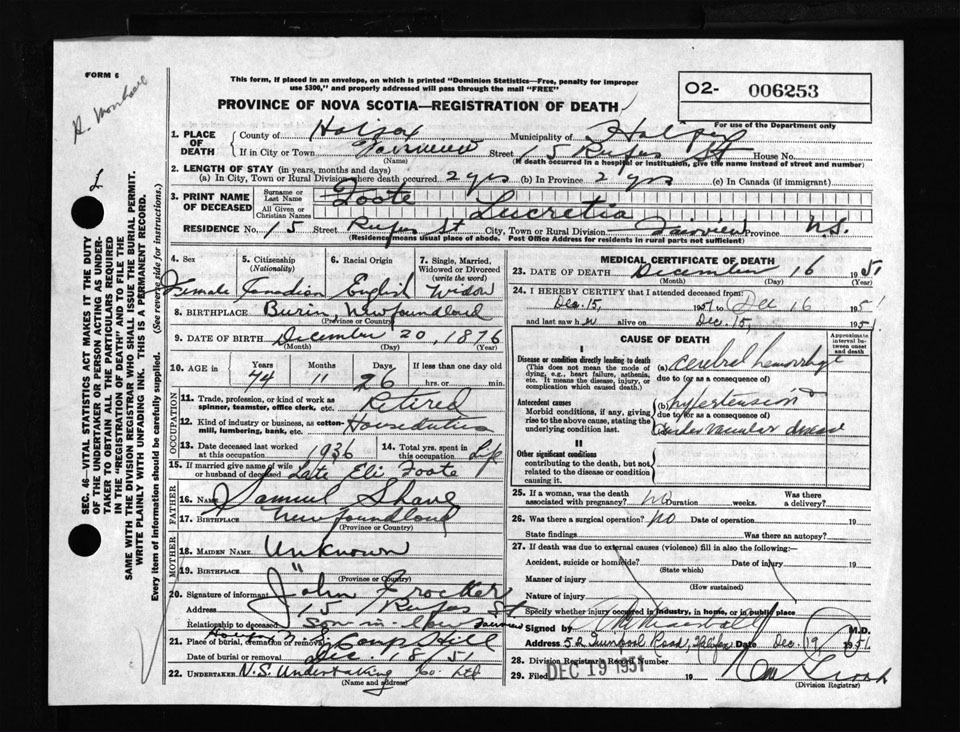 FORM 6
This form, if placed in an envelope, on which is printed "Dominion Statistics—Free, penalty for improper
use $300," and properly addressed will pass through the mail "FREE"
PROVINCE OF NOVA SCOTIA—REGISTRATION OF DEATH
O2- 006253
For use of the Department only
1. PLACE OF DEATH County of Halifax Municipality of Halifax
If in City or Town Fairview Street 15 Rufus St House No.
(Name) (If death occurred in a hospital or institution, give the name instead of street and number)
2. LENGTH OF STAY (in years, months and days)
(a) In City, Town or Rural Division where death occurred 2 yrs (b) In Province 2 yrs (c) In Canada (if immigrant)
3. PRINT NAME OF DECEASED Surname or Last Name Foote
All Given or Christian Names Lucretia
RESIDENCE No. 15 Street Rufus St City, Town or Rural Division Fairview Province N.S.
(Residence means usual place of abode. Post Office Address for residents in rural parts not sufficient)
SEC. 46—VITAL STATISTICS ACT MAKES IT THE DUTY
OF THE UNDERTAKER OR PERSON ACTING AS UNDER-
TAKER TO OBTAIN ALL THE PARTICULARS REQUIRED
IN THE "REGISTRATION OF DEATH" AND TO FILE THE
SAME WITH THE DIVISION REGISTRAR WHO SHALL ISSUE THE BURIAL PERMIT.
WRITE PLAINLY WITH UNFADING INK. THIS IS A PERMANENT RECORD.
Every item of information should be carefully supplied. (See reverse side for instructions.)
4. Sex 5. Citizenship (Nationality) 6. Racial Origin 7. Single, Married, Widowed or Divorced (write the word)
Female Canadian English Widow
8. BIRTHPLACE Burin, Newfoundland
(Province or Country)
9. DATE OF BIRTH December 20, 1876
(Month) (Day) (Year)
10. AGE in Years Months Days If less than one day old
74 11 26 hrs. or min.
OCCUPATION
11. Trade, profession, or kind of work as spinner, teamster, office clerk, etc. Retired
12. Kind of industry or business, as cotton-mill, lumbering, bank, etc. Houseduties
13. Date deceased last worked at this occupation 1936 14. Total yrs. spent in this occupation Life
15. If married give name of wife or husband of deceased Late Eli Foote
FATHER
16. NAME Samuel Shave
17. BIRTHPLACE Newfoundland
(Province or Country)
MOTHER
18. MAIDEN NAME Unknown
19. BIRTHPLACE "
(Province or Country)
20. Signature of informant John Crocker
Address 15 Rufus St
Relationship to deceased son-in-law Fairview
21. Place of burial, cremation or removal Camp Hill
Date of burial or removal Dec. 18/51
22. UNDERTAKER N.S. Undertaking Co. Ltd
(Name and address)
MEDICAL CERTIFICATE OF DEATH
23. DATE OF DEATH December 16 1951
(Month) (Day) (Year)
24. I HEREBY CERTIFY that I attended deceased from
Dec. 15, 1951 to Dec 16 1951
and last saw her alive on Dec. 15, 1951.
CAUSE OF DEATH
Approximate interval between onset and death
I
Disease or condition directly leading to death
(This does not mean the mode of dying, e.g., heart failure, asthenia, etc. It means the disease, injury, or complication which caused death.)
(a) Cerebral hemorrhage
due to (or as a consequence of)
Antecedent causes
Morbid conditions, if any, giving rise to the above cause, stating the underlying condition last.
(b) hypertension
due to (or as a consequence of)
(c) vascular disease
II
Other significant conditions
contributing to the death, but not related to the disease or condition causing it.
25. If a woman, was the death associated with pregnancy? no Duration weeks. Was there a delivery?
26. Was there a surgical operation? no Date of operation 19
State findings Was there an autopsy?
27. If death was due to external causes (violence) fill in also the following:—
Accident, suicide or homicide? Date of injury 19
(State which)
Manner of injury
(How sustained)
Nature of injury
Specify whether injury occurred in industry, in home, or in public place
Signed by M.D.
Address 52 Quinpool Road, Halifax Date Dec. 19 1951
28. Division Registrar's Record Number
29. Filed DEC 19 1951
(Division Registrar)